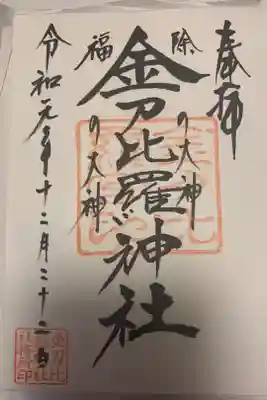 奉拝
除の大神
金刀比羅神社
福の大神
令和元年十二月二十二日